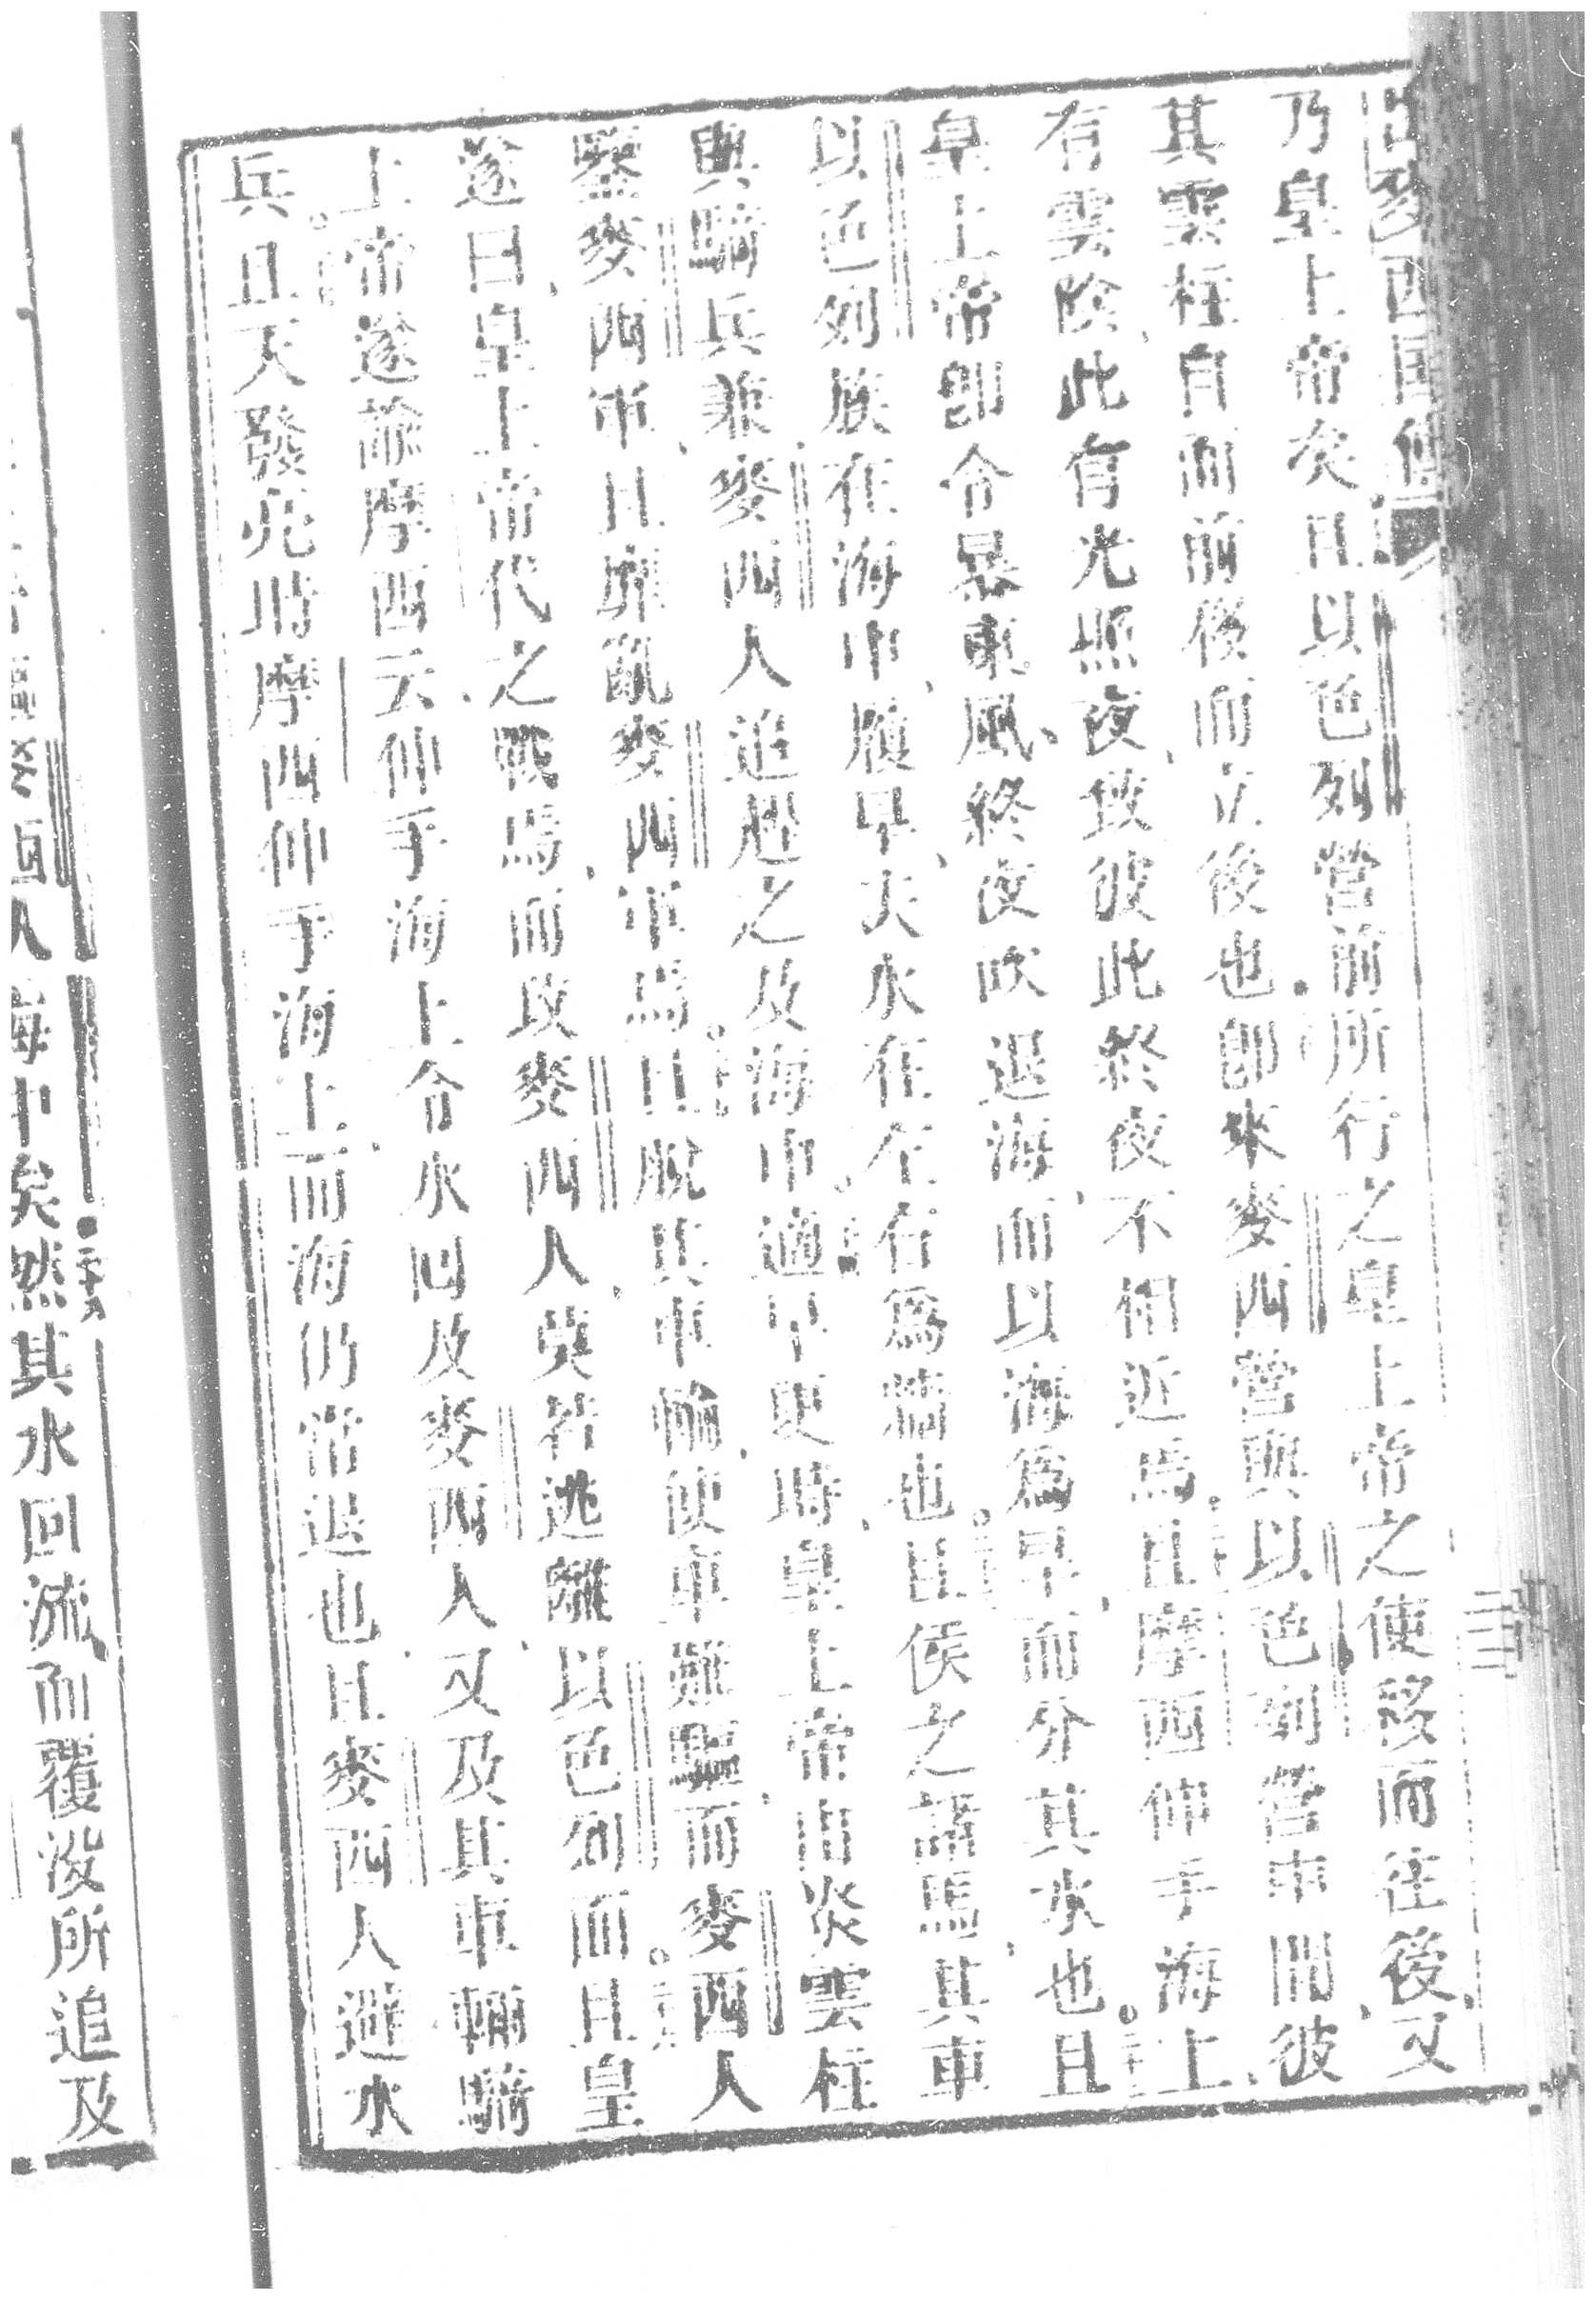 出麥西國傳
乃皇上帝矣且以色列營前所行之皇上帝之使移而往後又
其雲柱自面前移而立後也卽來麥西營與以色列營中間彼
有雲陰此有光照夜致彼此終夜不相近焉且摩西伸手海上
皇上帝卽令暴東風終夜吹退海而以海爲旱而分其水也且
以色列族在海中履旱夫水在左右爲墻也且侯之諸馬其車
與騎兵兼麥西人追趕之及海中適甲更時皇上帝由炎雲柱
鑒麥西軍且擾亂麥西軍焉且脫其車輪使車難驅而麥西人
遂曰皇上帝代之戰焉而攻麥西人莫若逃離以色列而且皇
上帝遂諭摩西云伸手海上令水回及麥西人又及其車輛騎
兵且天發亮時摩西伸手海上而海仍常退也且麥西人避水
人海中矣然其水回流而覆沒所追及